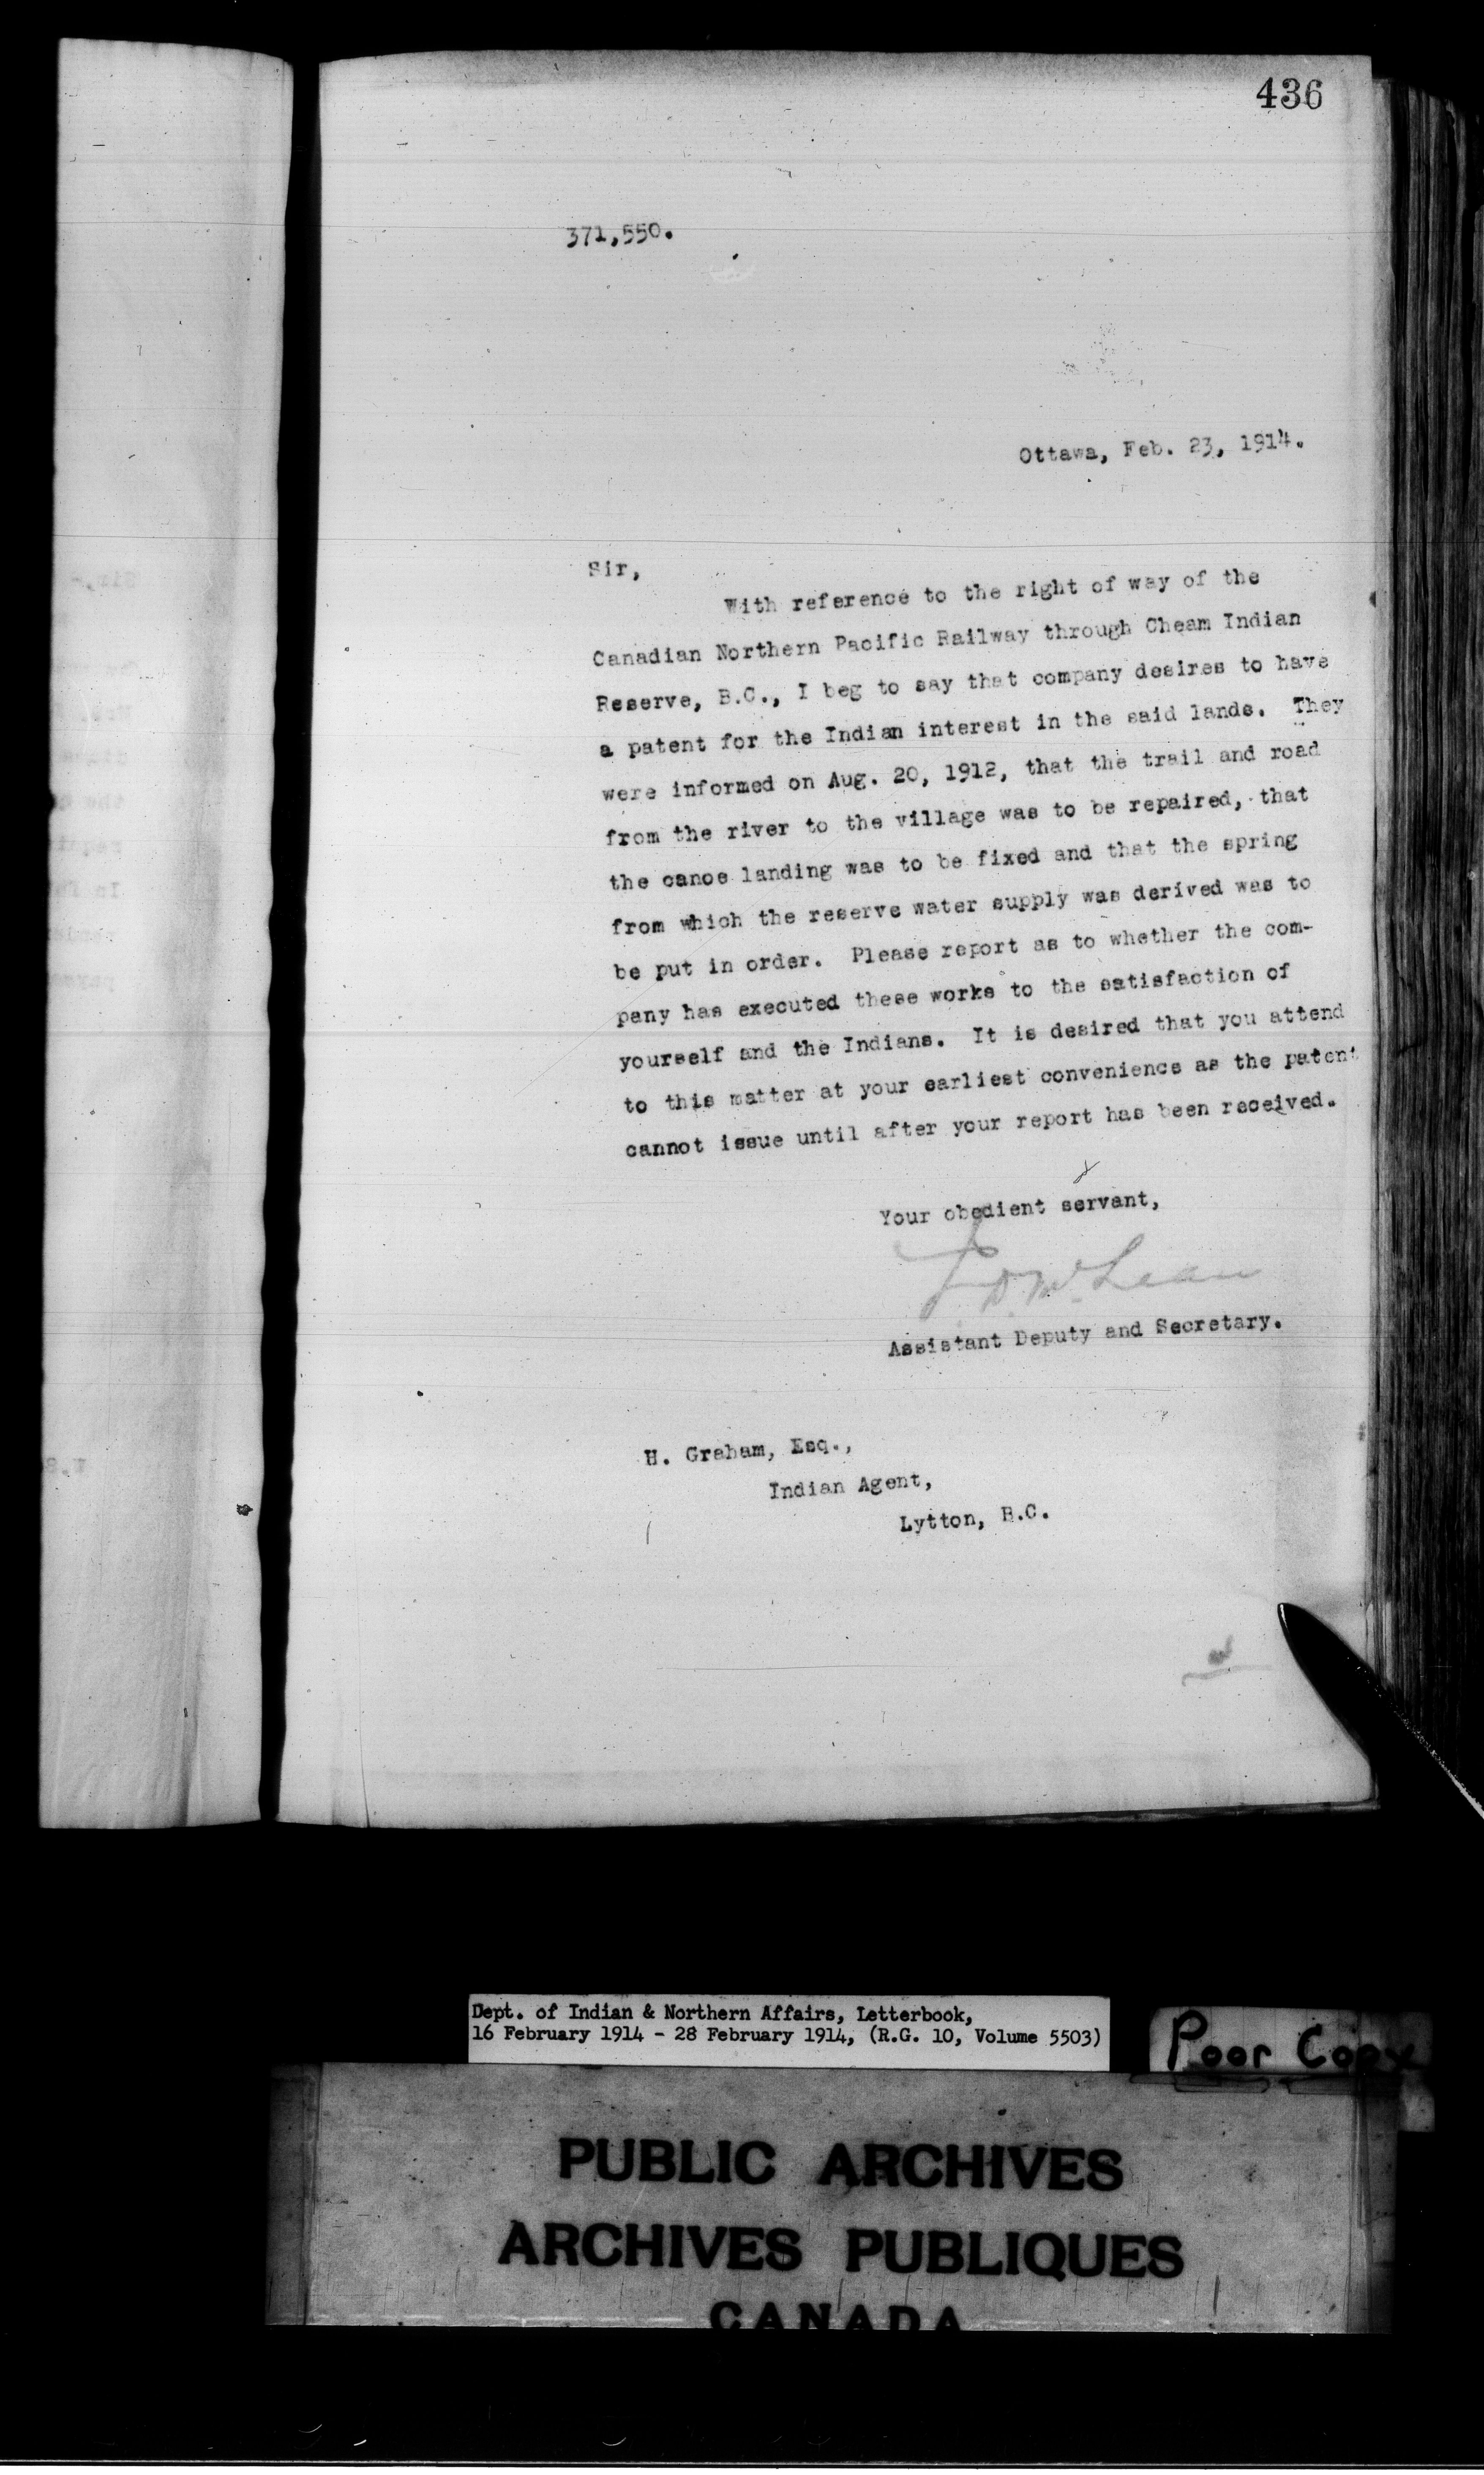 436
371,550.
Ottawa, Feb. 23, 1914.
Sir,
With reference to the right of way of the
Canadian Northern Pacific Railway through Cheam Indian
Reserve, B.C., I beg to say that company desires to have
a patent for the Indian interest in the said lands. They
were informed on Aug. 20, 1912, that the trail and road
from the river to the village was to be repaired, that
the canoe landing was to be fixed and that the spring
from which the reserve water supply was derived was to
be put in order. Please report as to whether the com-
pany has executed these works to the satisfaction of
yourself and the Indians. It is desired that you attend
to this matter at your earliest convenience as the patent
cannot issue until after your report has been received.
Your obedient servant,
J. D. McLean
Assistant Deputy and Secretary.
H. Graham, Esq.,
Indian Agent,
Lytton, B.C.
Dept. of Indian & Northern Affairs, Letterbook,
16 February 1914 - 28 February 1914, (R.G. 10, Volume 5503)
Poor Copy
PUBLIC ARCHIVES
ARCHIVES PUBLIQUES
CANADA